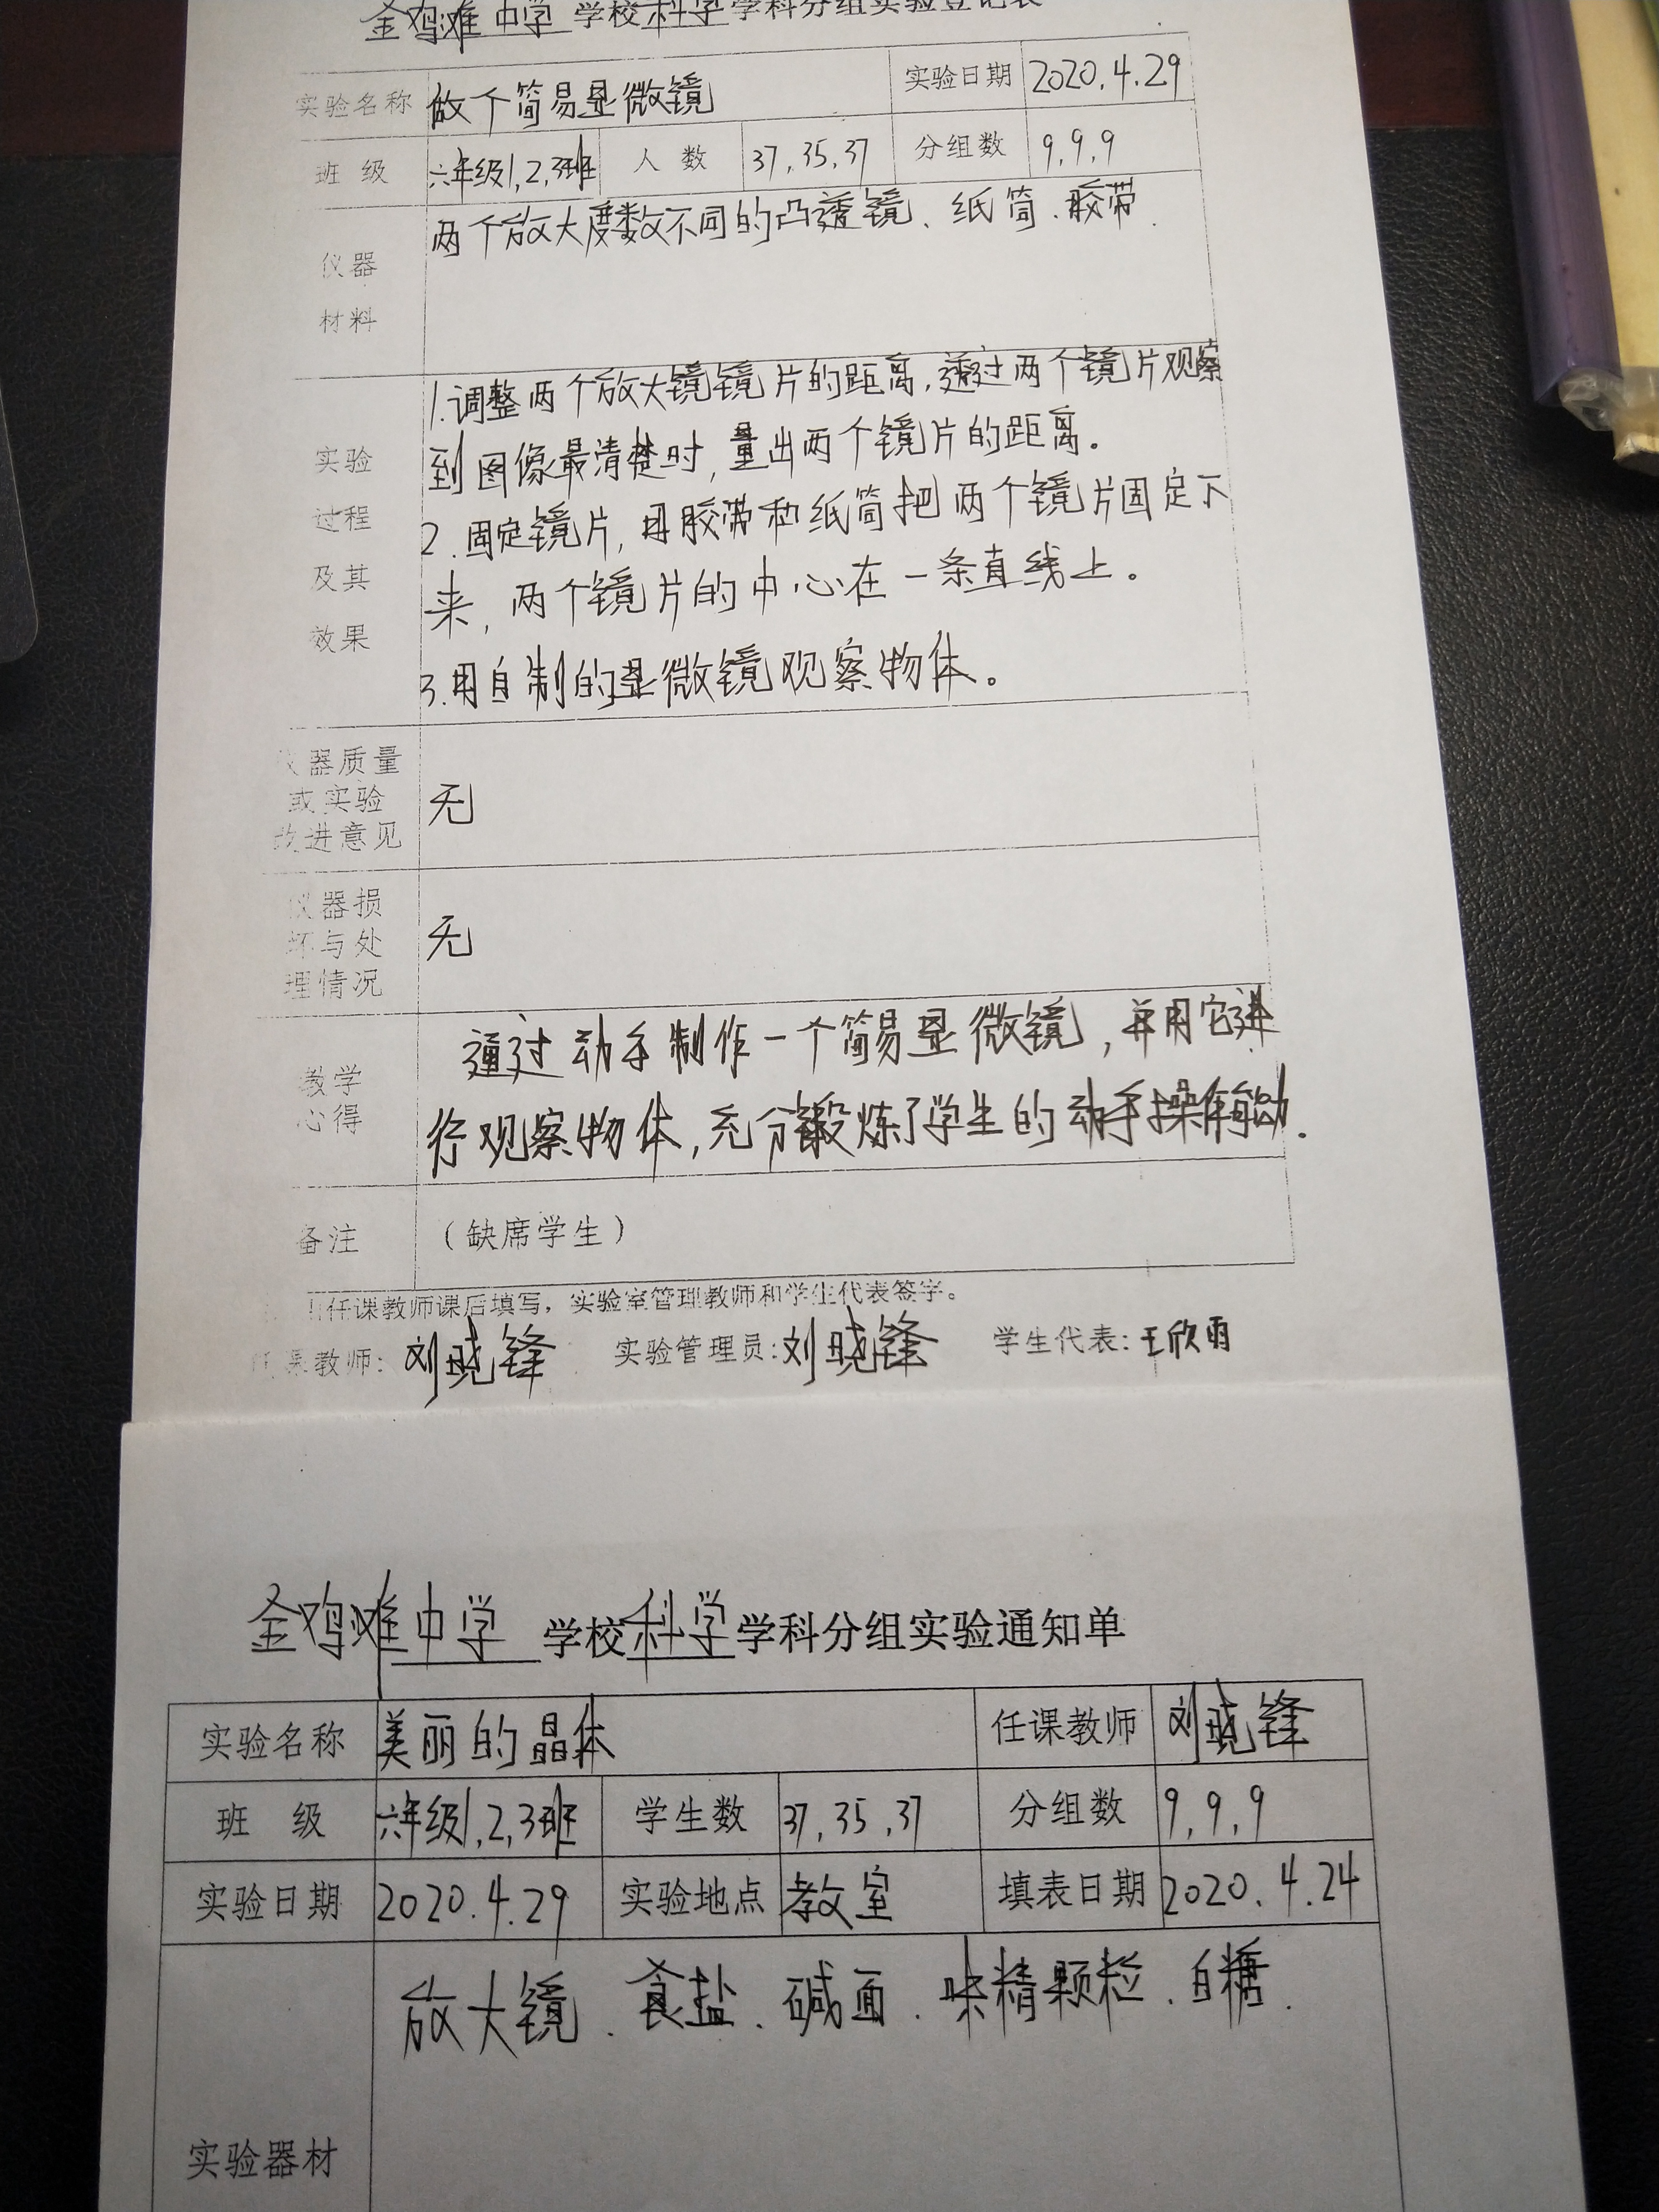 金鸡滩中学 学校科学学科分组实验登记表
实验名称 做个简易显微镜 实验日期 2020.4.29
班 级 六年级1,2,3班 人 数 37,35,37 分组数 9,9,9
仪器
材料
两个放大度数不同的凸透镜、纸筒、胶带.
实验
过程
及其
效果
1.调整两个放大镜镜片的距离,透过两个镜片观察
到图像最清楚时,量出两个镜片的距离。
2.固定镜片,用胶带和纸筒把两个镜片固定下
来,两个镜片的中心在一条直线上。
3.用自制的显微镜观察物体。
仪器质量
或实验
改进意见
无
仪器损
坏与处
理情况
无
教学
心得
通过动手制作一个简易显微镜,并用它进
行观察物体,充分锻炼了学生的动手操作能力.
备注 (缺席学生)
任课教师课后填写,实验室管理教师和学生代表签字。
任课教师: 刘晓锋 实验管理员: 刘晓锋 学生代表: 王欣雨
金鸡滩中学 学校科学学科分组实验通知单
实验名称 美丽的晶体 任课教师 刘晓锋
班 级 六年级1,2,3班 学生数 37,35,37 分组数 9,9,9
实验日期 2020.4.29 实验地点 教室 填表日期 2020.4.24
放大镜、食盐、碱面、味精颗粒、白糖.
实验器材